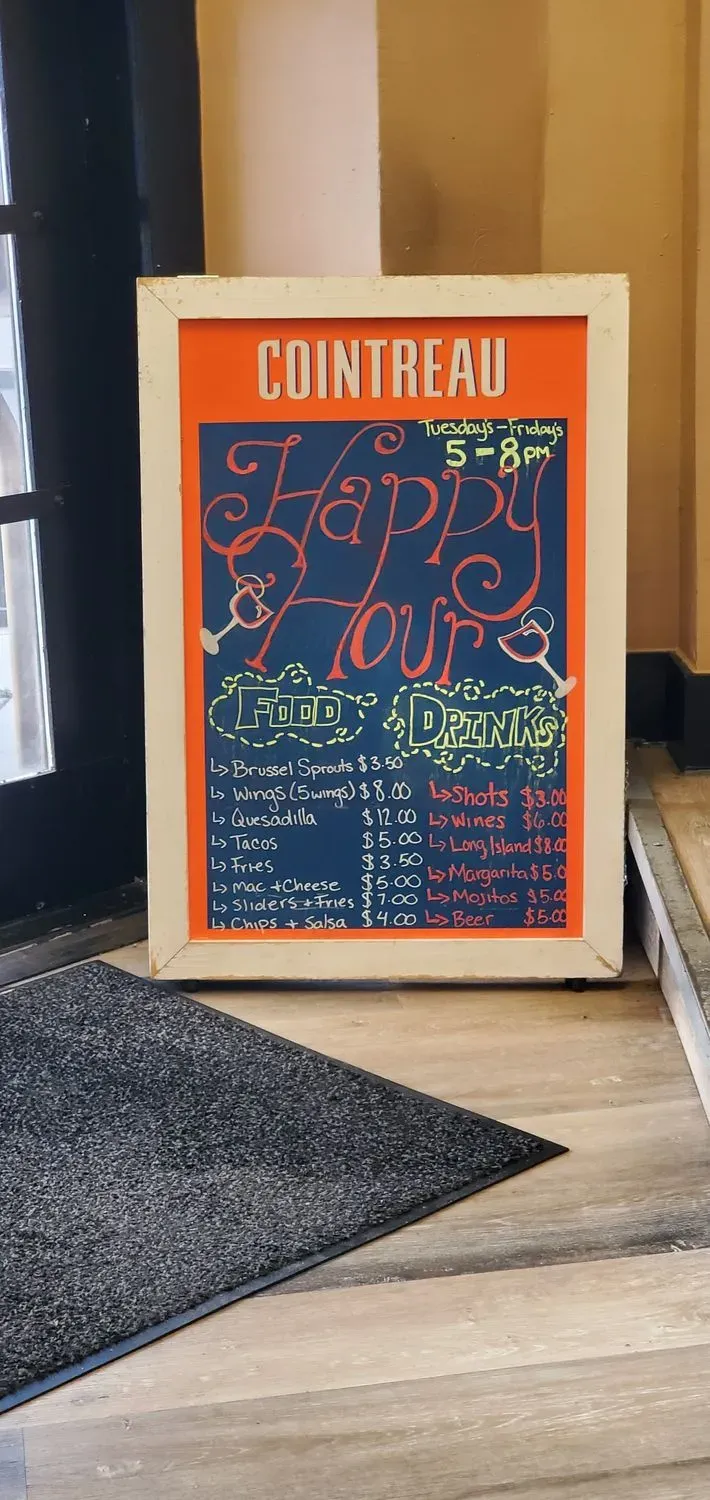 COINTREAU
Tuesday's - Friday's
5 - 8 PM
Happy
Hour
FOOD
↳ Brussel Sprouts $3.50
↳ Wings (5 wings) $8.00
↳ Quesadilla $12.00
↳ Tacos $5.00
↳ Fries $3.50
↳ Mac + Cheese $5.00
↳ Sliders + Fries $7.00
↳ Chips + Salsa $4.00
DRINKS
↳ Shots $3.00
↳ Wines $6.00
↳ Long Island $8.00
↳ Margarita $5.0
↳ Mojitos $5.00
↳ Beer $5.00